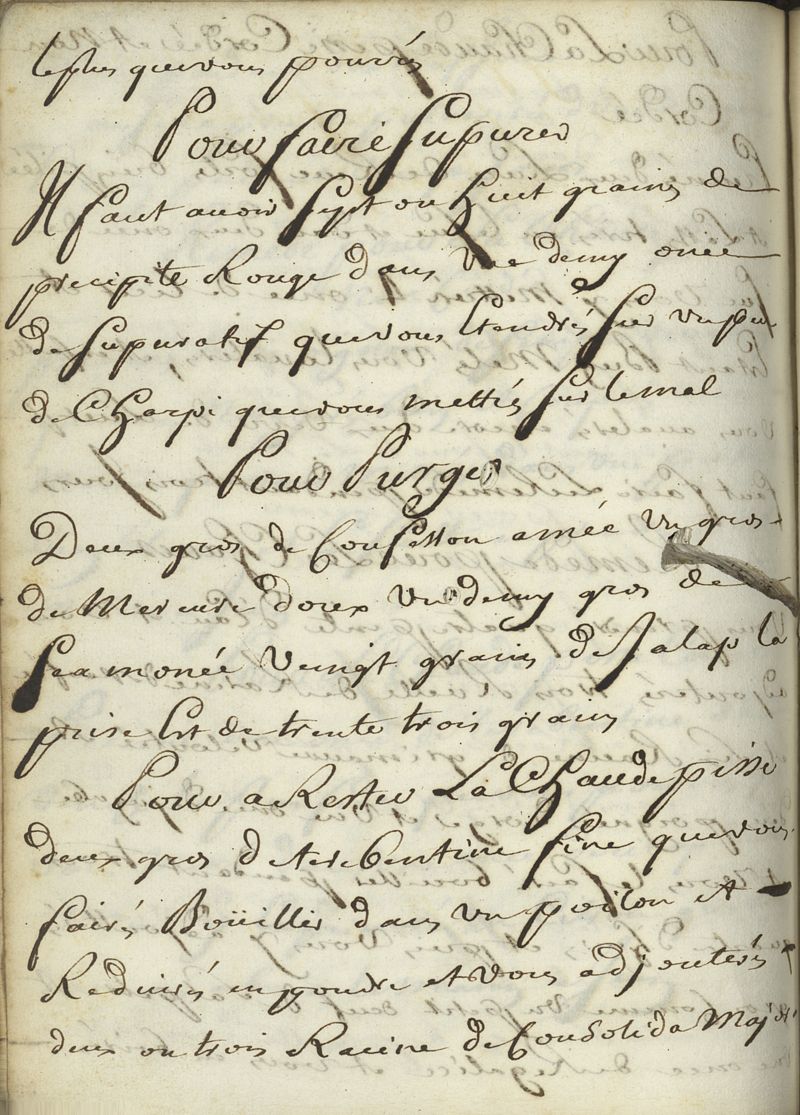 le plus que vous pourrés
Pour faire Supurer
Il faut avoir Sept ou Huit grains de
precipité Rouge dans une demy once
de Supuratif que vous Etendrés Sur un peu
de CHarpi que vous mettrés Sur le mal
Pour Purger
Deux gros de Confession amée Un gros
de Mercure doux Un demy gros de
Scamonée Veingt grains de Jalap la
prise Est de trente trois grains
Pour aRester La CHaudepisse
deux gros de terebentine fine que vous
fairés Boüillir dans un poëlon et
Reduirés en poudre et vous adjouterés
deux ou trois Racine de Consolida Major